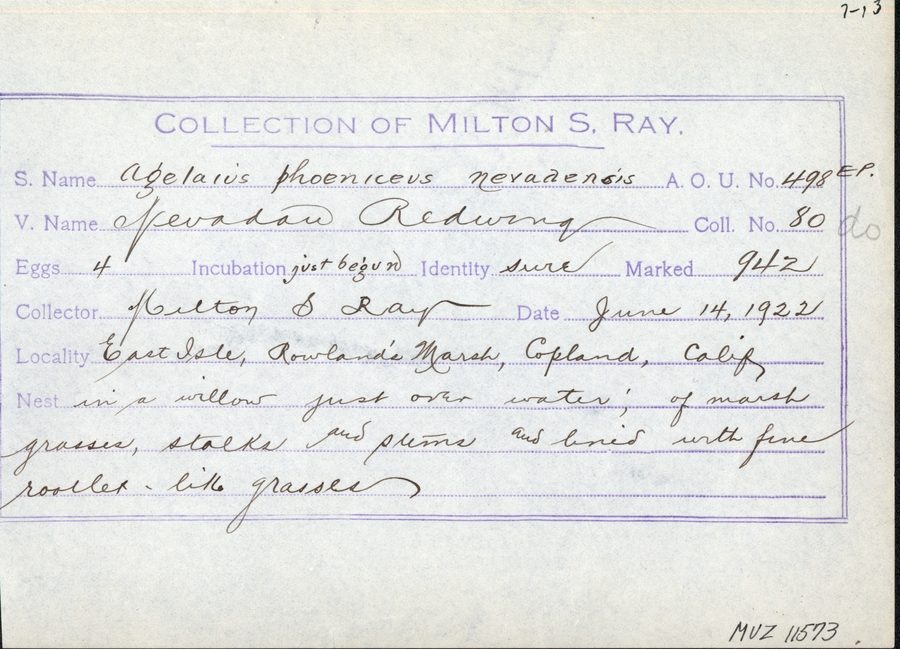 7-13
COLLECTION OF MILTON S. RAY.
S. Name Agelaius phoeniceus nevadensis A. O. U. No. 498 EP.
V. Name Nevadan Redwing Coll. No. 80 do
Eggs 4 Incubation just begun Identity sure Marked 942
Collector Milton S Ray Date June 14, 1922
Locality East Isle, Rowland's Marsh, Copland, Calif
Nest in a willow just over water; of marsh
grasses, stalks and stems and lined with fine
rootlet-like grasses
MVZ 11573